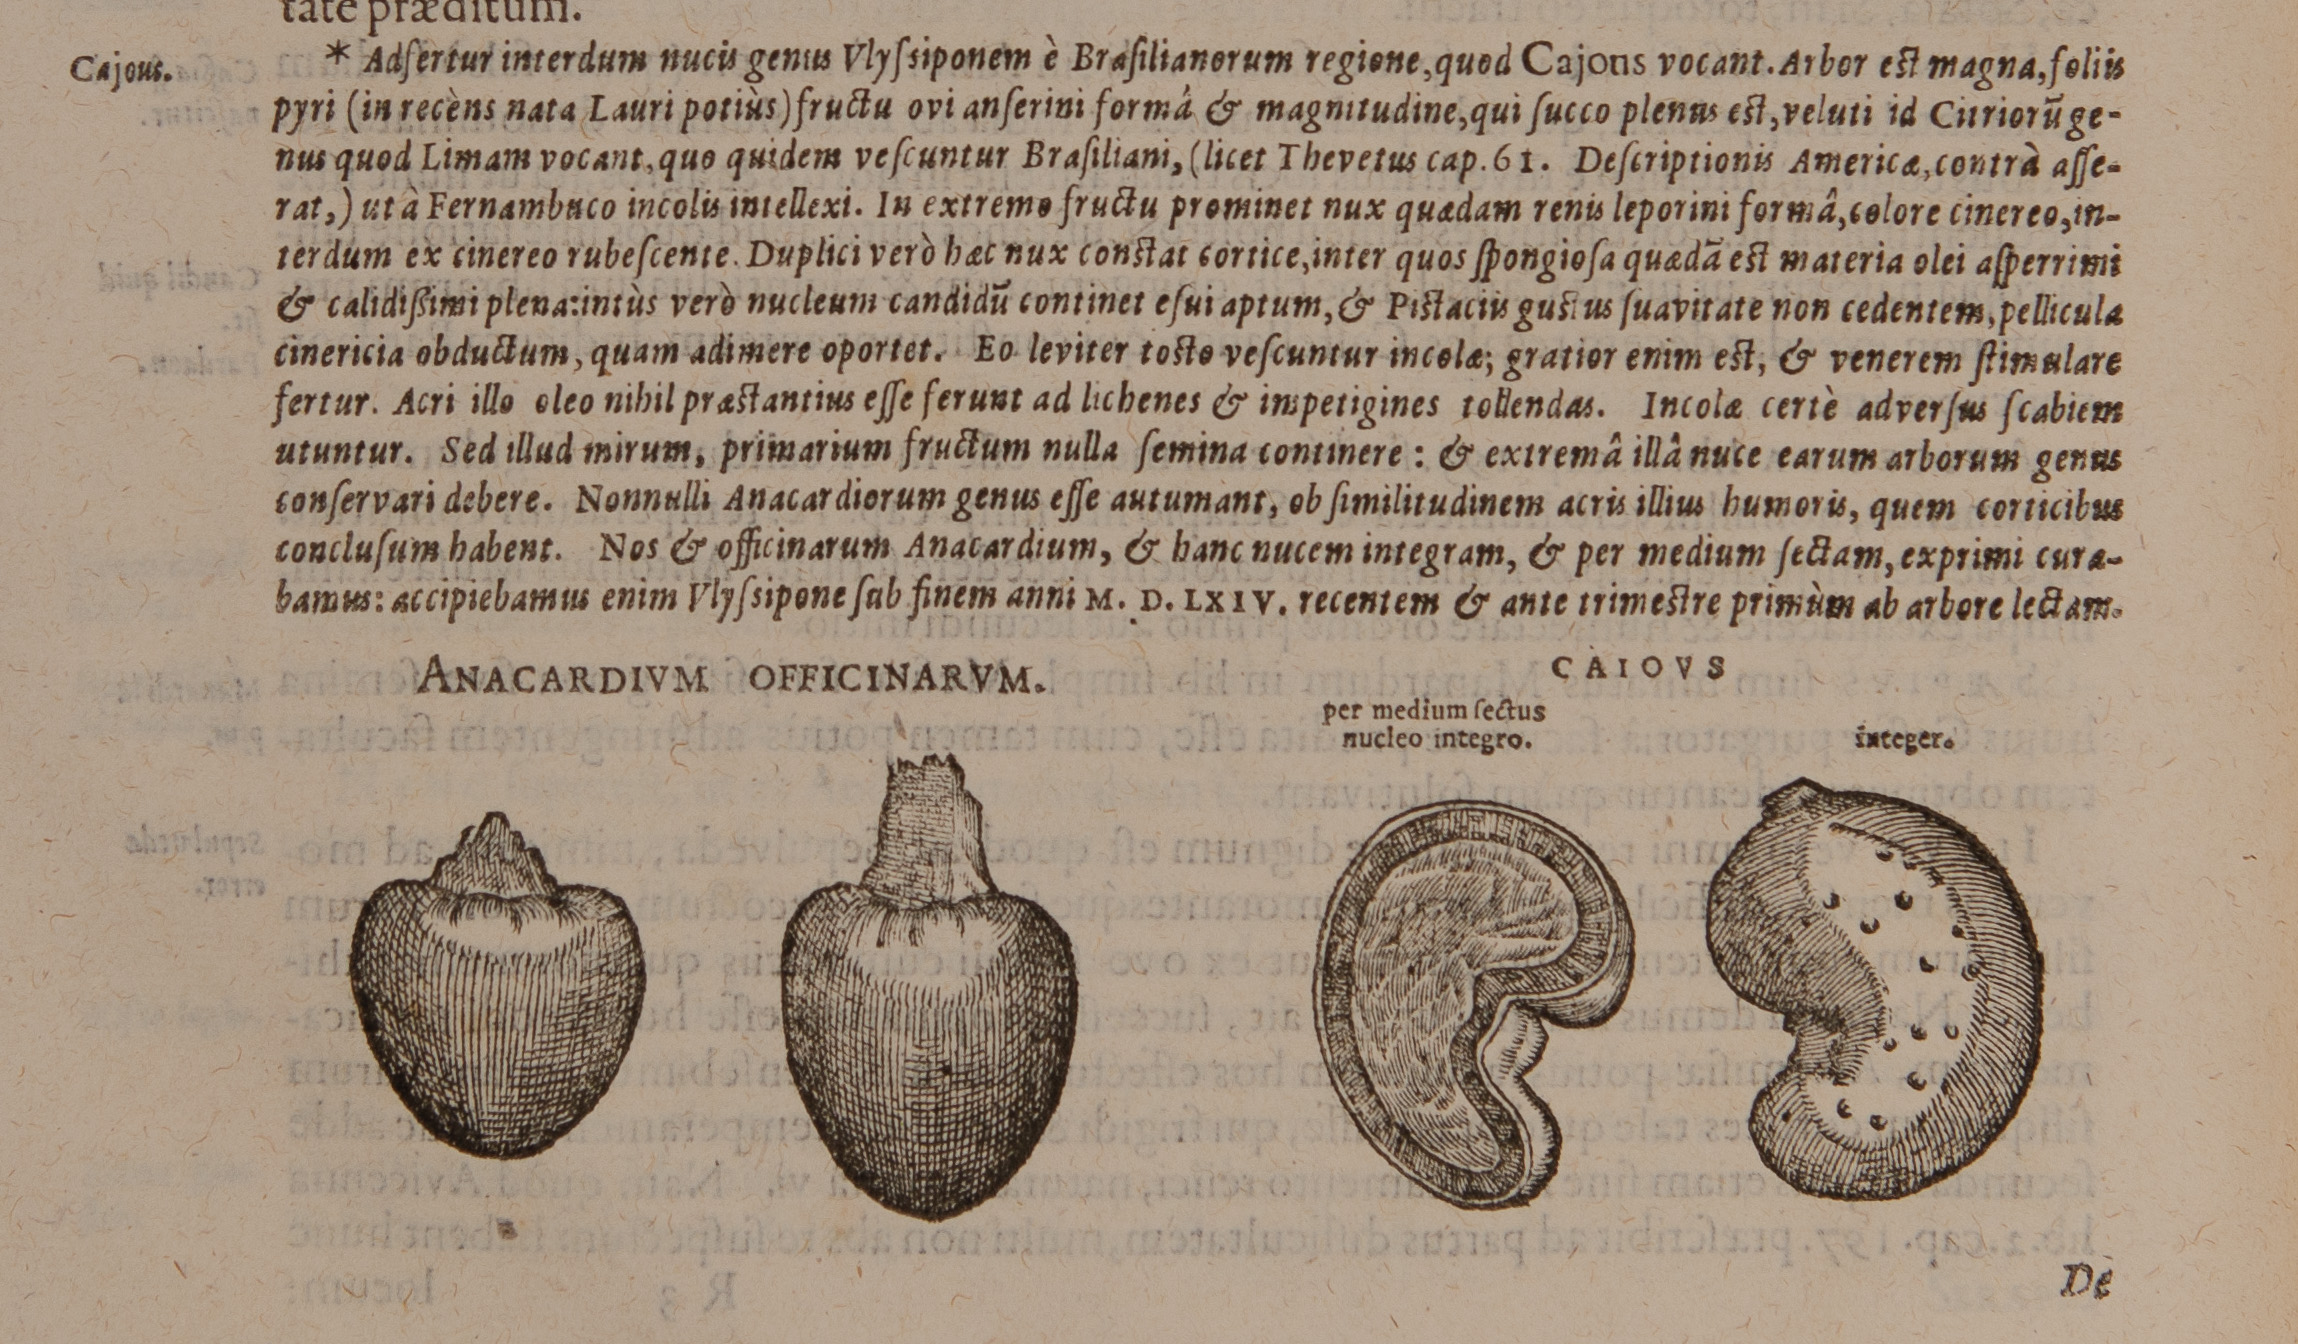 tate præditum.
Cajous.
* Adſertur interdum nucis genus Vlyſsiponem è Braſilianorum regione, quod Cajous vocant. Arbor est magna, foliis
pyri (in recèns nata Lauri potiùs) fructu ovi anſerini formâ & magnitudine, qui ſucco plenus est, veluti id Citriorũ ge-
nus quod Limam vocant, quo quidem veſcuntur Braſiliani, (licet Thevetus cap. 61. Deſcriptionis Americæ, contrà aſſe-
rat,) ut à Fernambuco incolis intellexi. In extremo fructu prominet nux quædam renis leporini formâ, colore cinereo, in-
terdum ex cinereo rubeſcente. Duplici verò hæc nux constat cortice, inter quos ſpongioſa quædã est materia olei aſperrimi
& calidiſsimi plena: intùs verò nucleum candidũ continet eſui aptum, & Pistaciis gustus ſuavitate non cedentem, pellicula
cinericia obductum, quam adimere oportet. Eo leviter tosto veſcuntur incolæ; gratior enim est, & venerem ſtimulare
fertur. Acri illo oleo nihil præstantius eſſe ferunt ad lichenes & impetigines tollendas. Incolæ certè adverſus ſcabiem
utuntur. Sed illud mirum, primarium fructum nulla ſemina continere: & extremâ illâ nuce earum arborum genus
conſervari debere. Nonnulli Anacardiorum genus eſſe autumant, ob ſimilitudinem acris illius humoris, quem corticibus
concluſum habent. Nos & officinarum Anacardium, & hanc nucem integram, & per medium ſectam, exprimi cura-
bamus: accipiebamus enim Vlyſsipone ſub finem anni M. D. LXIV. recentem & ante trimestre primùm ab arbore lectam.
ANACARDIVM OFFICINARVM.
CAIOVS
per medium ſectus
nucleo integro.
integer.
De